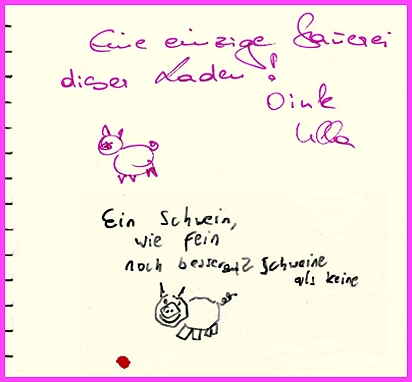 Eine einzige Sauerei
dieser Laden!
Oink
Ulla
Ein Schwein,
wie fein
noch besser 2 Schweine
als keine